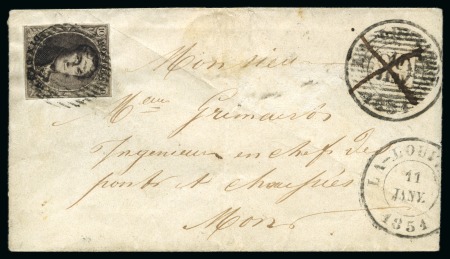 Monsieur
Maus Grimaerds
Ingénieur en chef des
ponts et chaussées
Mons
LA-LOUV
11
JANV.
1854